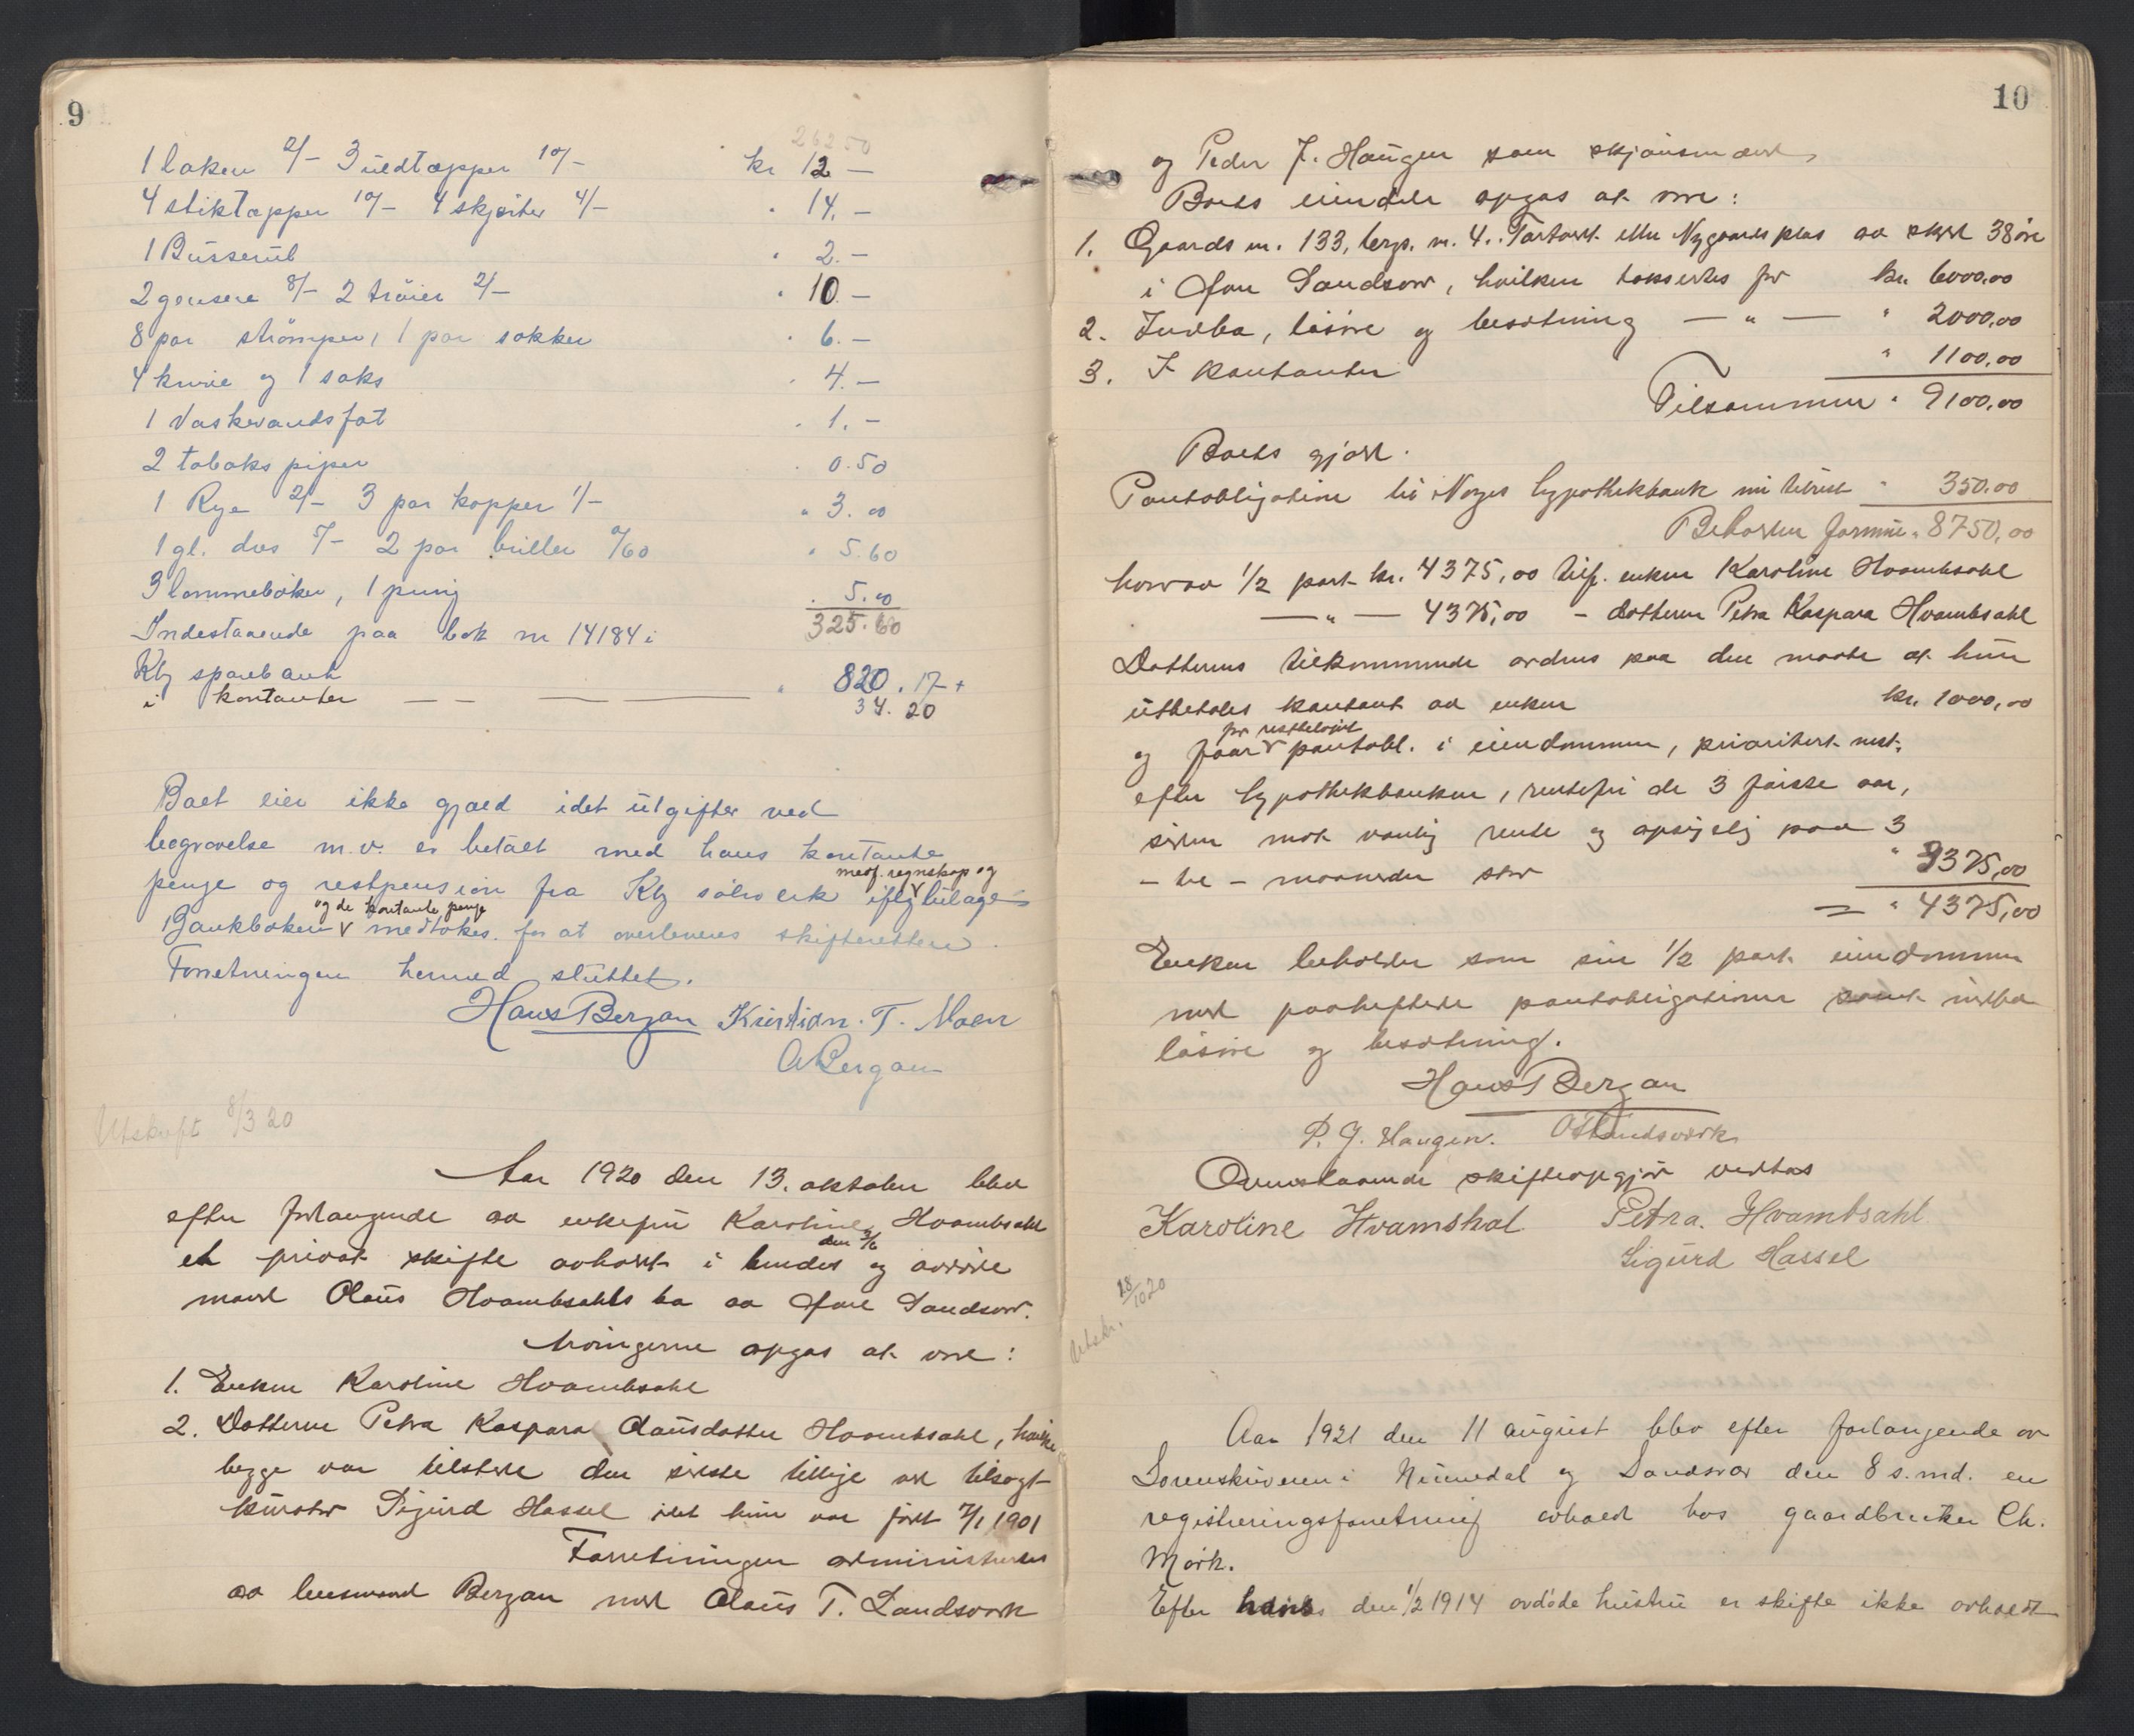 9
262 50
1 laken 2/- 3 uldtæpper 10/- kr 12 -
4 stiktæpper 10/- 4 skjorter 4/- " 14. -
1 Busserul " 2. -
2 gensere 8/- 2 tröier 2/- " 10 -
8 par strömper, 1 par sokker " 6. -
4 knive og 1 saks " 4. -
1 Vaskevandsfat " 1. -
2 tobaks piper " 0.50
1 Rye 2/- 3 par kopper 1/- " 3.00
1 gl. dres 5/- 2 par briller 0/60 " 5.60
3 lommeböker, 1 pung " 5.00
325.60
Indestaaende paa bok nr 14184 i
Kbg sparebank " 820.17 +
i kontanter — — — 34.20
Boet eier ikke gjæld idet utgifter ved
begravelse m.v. er betalt med hans kontante
penge og restpension fra Kbg sölvverk iflg medf. regnskap og bilage
Bankboken og de kontante penge medtokes for at overleveres skifteretten.
Forretningen hermed sluttet.
Hans Bergan Kristian. T. Moen
A Bergan
Utskrift 8/3 20
Aar 1920 den 13. oktober blev
efter forlangende av enkefru Karoline Hvambsahl
et privat skifte avholdt i hendes og den 3/6 avdöde
mand Olaus Hvambsahls bo av Övre Sandsvær.
Arvingerne opgas at være:
1. Enken Karoline Hvambsahl
2. Datteren Petra Kaspara Olausdatter Hvambsahl, hvilke
begge var tilstede den sidste tillige ved tilsagt
kurator Sigurd Hassel idet hun var född 7/1 1901
Forretningen administreredes
av lensmand Bergan med Olaus T. Landsverk
10
og Peder J. Haugen som skjönsmænd
Boets eiendele opgas at være:
1. Gaards nr. 133, brgs. nr. 4. Tortorst eller Nygaards plas av skyld 38 öre
i Övre Sandsvær, hvilken takseredes for kr. 6000,00
2. Indbo, lösöre og besætning — " — " 2000,00
3. I kontanter " 1100,00
Tilsammen " 9100,00
Boets gjæld.
Pantobligation til Norges hypothekbank nu tilrest " 350.00
Beholden formue " 8750,00
hvorav 1/2 part kr. 4375,00 tilf. enken Karoline Hvambsahl
— " — 4375,00 - datteren Petra Kaspara Hvambsahl
Datterens tilkommende ordnes paa den maate at hun
utbetales kontant av enken kr. 1000,00
og faar for restbelöpet pantobl. i eiendommen, prioritert næst
efter hypothekbanken, rentefri de 3 förste aar,
siden mot vanlig rente og opsigelig paa 3
- tre - maaneder stor " 3375,00
= " 4375,00
Enken beholder som sin 1/2 part eiendommen
med paaheftede pantobligationer samt indbo
lösöre og besætning.
Hans Bergan
P. J. Haugen. O T Landsverk
Ovenstaaende skifteopgjör vedtas
Karoline Hvamshal Petra. Hvambsahl
Sigurd Hassel
Utskr. 28/10 20
Aar 1921 den 11 august blev efter forlangende av
Sorenskriveren i Numedal og Sandsvær den 8 s.md. en
registreringsforretning avholdt hos gaardbruker Ch.
Mörk.
Efter hans den 1/2 1914 avdöde hustru er skifte ikke avholdt